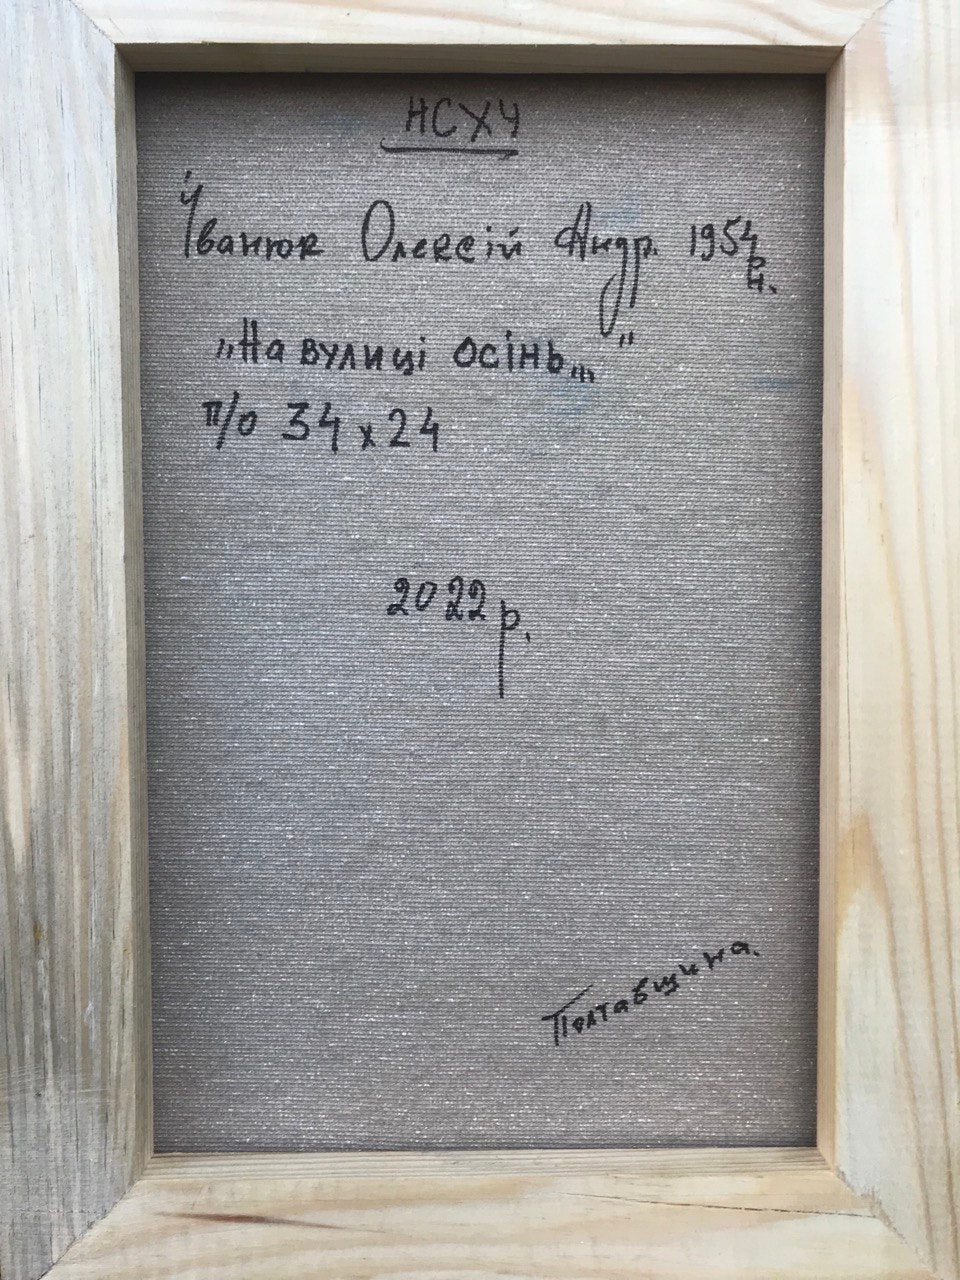 НСХУ
Іванюк Олексій Андр. 1954 р н.
„На вулиці осінь..."
п/о 34 х 24
2022 р.
Полтавщина.